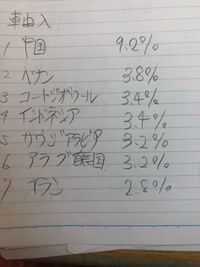 車由入
1 中国 9.2%
2 ベナン 3.8%
3 コートジボワール 3.4%
4 インドネシア 3.4%
5 サウジアラビア 3.2%
6 アラブ首長国 3.2%
7 イラン 2.8%